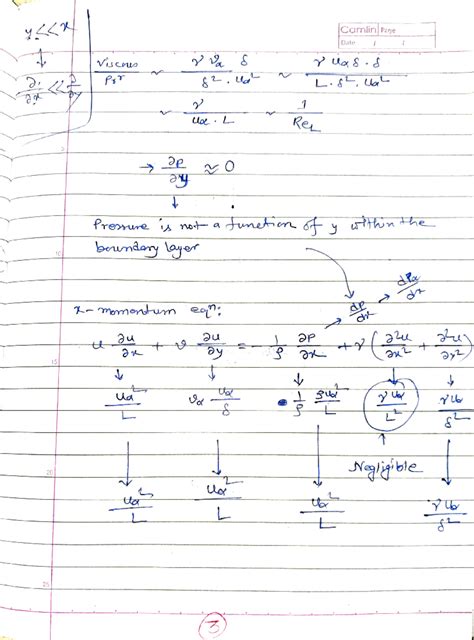 y << x
↓
∂/∂x << ∂/∂y
Camlin Page
Date / /
Viscous/Pr ~ ν v_α δ / δ² · u_α² ~ ν u_α δ · δ / L · δ² · u_α²
~ ν / u_α · L ~ 1 / Re_L
→ ∂p/∂y ≈ 0
↓
Pressure is not a function of y within the
boundary layer
x-momentum eqⁿ:
dp/dx → dp_α/dx
u ∂u/∂x + v ∂u/∂y = - 1/ρ ∂p/∂x + ν (∂²u/∂x² + ∂²u/∂y²)
↓ ↓ ↓ ↓ ↓
u_α²/L v_α u_α/δ 1/ρ ρu_α²/L ν u_α/L² ν u_α/δ²
Negligible
u_α²/L u_α²/L u_α²/L ν u_α/δ²
3
5
10
15
20
25